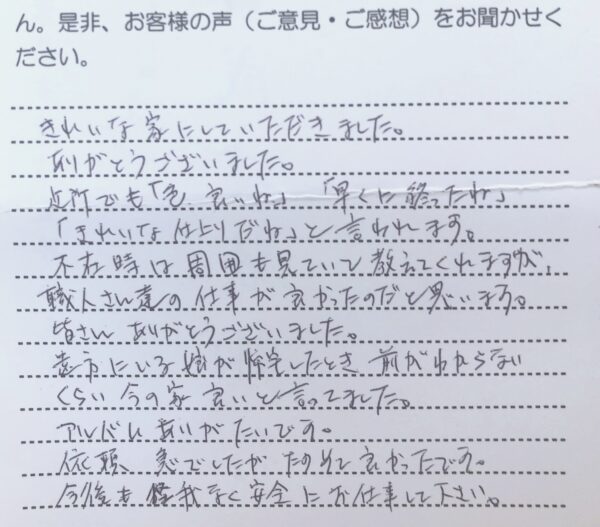 ん。是非、お客様の声（ご意見・ご感想）をお聞かせく
ださい。
きれいな家にしていただきました。
ありがとうございました。
近所でも「色、良いね」「早くに終ったね」
「きれいな仕上りだね」と言われます。
不在時は周囲も見ていて教えてくれますが、
職人さん達の仕事が良かったのだと思います。
皆さんありがとうございました。
にいる娘が帰宅したとき前がわからない
くらい今の家良いと言ってました。
ありがたいです。
依頼、急でしたがたのめて良かったです。
今後も怪我なく安全にお仕事して下さい。